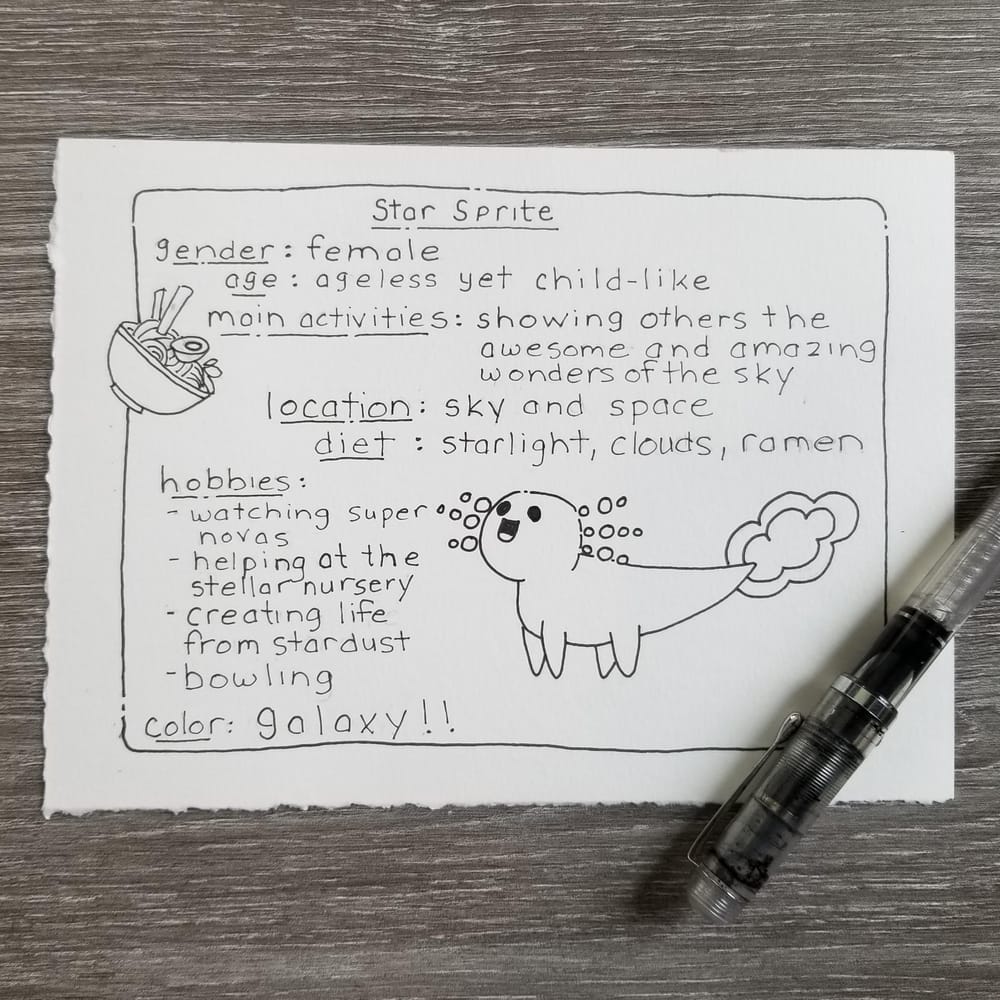 Star Sprite
gender: female
age: ageless yet child-like
main activities: showing others the
awesome and amazing
wonders of the sky
location: sky and space
diet: starlight, clouds, ramen
hobbies:
- watching super
novas
- helping at the
stellar nursery
- creating life
from stardust
- bowling
color: galaxy!!